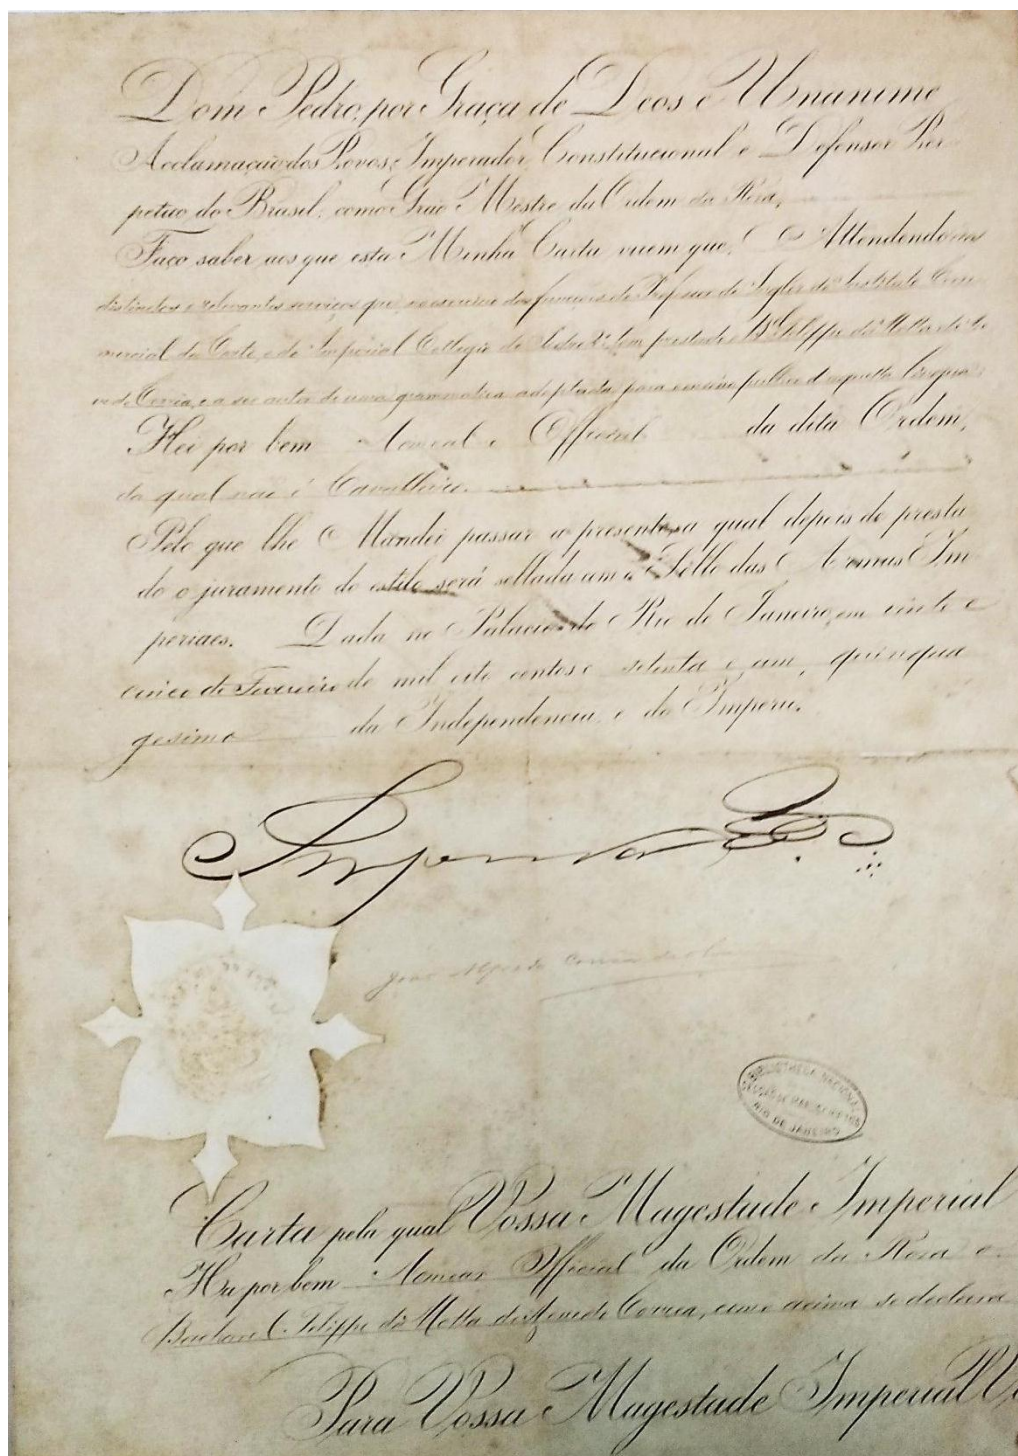 Dom Pedro, por Graça de Deos e Unanime
Acclamação dos Povos, Imperador Constitucional e Defensor Per-
petuo do Brasil, como Grão Mestre da Ordem da Rosa,
Faço saber aos que esta Minha Carta virem que, Attendendo aos
distinctos e relevantes serviços que, no exercicio das funcções de Professor de Inglez do Instituto Com-
mercial da Corte, e do Imperial Collegio de Pedro 2º tem prestado Filippe da Motta de
Corrêa, e a ser autor de uma grammatica adoptada para ensino publico d'aquella lingua:
Hei por bem Nomeal-o Official da dita Ordem,
da qual não é Cavalleiro.
Pelo que lhe Mandei passar a presente, a qual depois de presta
do o juramento do estilo será sellada com o Sello das Armas Im-
periaes. Dada no Palacio do Rio de Janeiro, em vinte e
cinco de Fevereiro de mil oito centos e setenta e um, quinqua
gesimo da Independencia e do Imperio.
Imperador
João Alfredo Corrêa de
BIBLIOTHECA NACIONAL
SECÇÃO DE MANUSCRIPTOS
RIO DE JANEIRO
Carta pela qual Vossa Magestade Imperial
Ha por bem Nomear Official da Ordem da Rosa o
Bacharel Filippe da Motta de Azevedo Corrêa, como acima se declara
Para Vossa Magestade Imperial